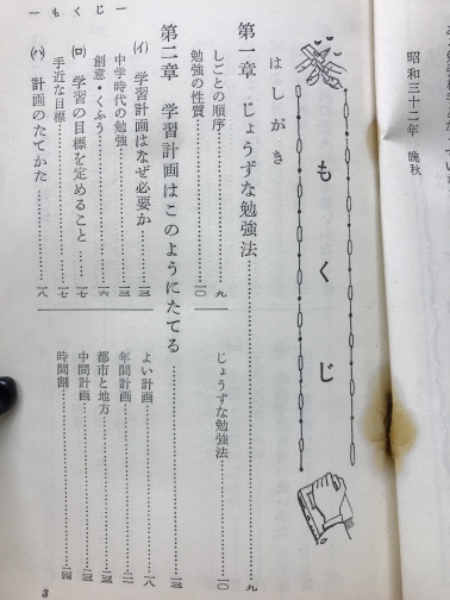 昭和三十二年 晩秋
もくじ
はしがき
第一章 じょうずな勉強法…………九
しごとの順序…………九
勉強の性質…………一〇
じょうずな勉強法…………一〇
第二章 学習計画はこのようにたてる…………一三
(イ) 学習計画はなぜ必要か…………一三
中学時代の勉強…………一三
創意・くふう…………一六
(ロ) 学習の目標を定めること……一七
手近な目標…………一七
(ハ) 計画のたてかた…………一八
よい計画…………一八
年間計画…………
都市と地方…………
中間計画…………
時間割…………
―もくじ―
3